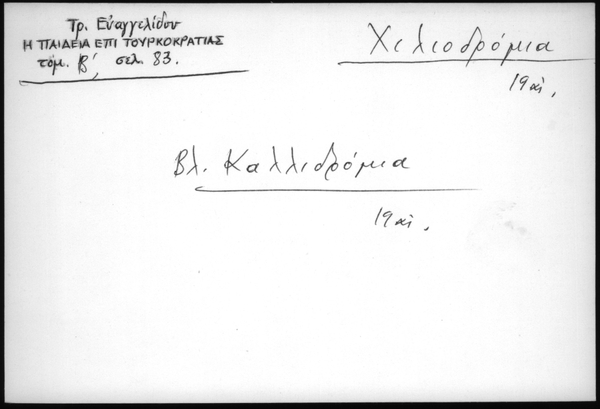 Τρ. Εὐαγγελίδου
Η ΠΑΙΔΕΙΑ ΕΠΙ ΤΟΥΡΚΟΚΡΑΤΙΑΣ
τόμ. Β΄, σελ. 83.
Χελιοδρόμια
19 αἰ.
Βλ. Καλλιδρόμια
19 αἰ.